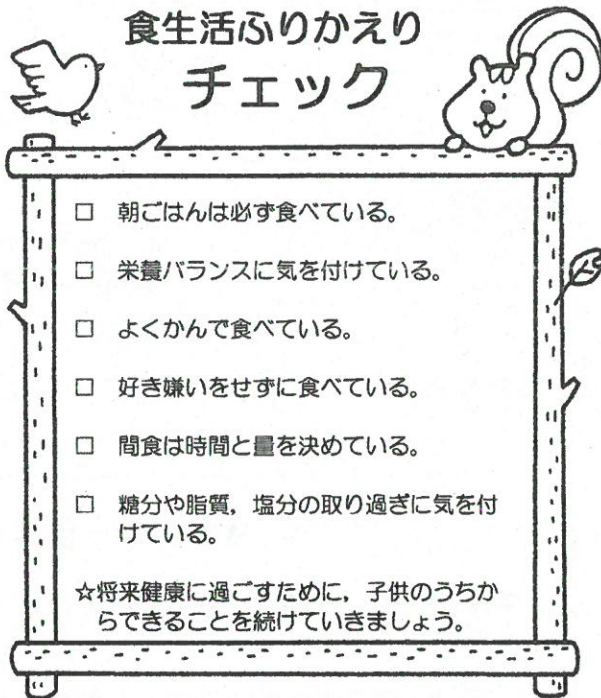 食生活ふりかえり
チェック
□ 朝ごはんは必ず食べている。
□ 栄養バランスに気を付けている。
□ よくかんで食べている。
□ 好き嫌いをせずに食べている。
□ 間食は時間と量を決めている。
□ 糖分や脂質，塩分の取り過ぎに気を付
けている。
☆将来健康に過ごすために，子供のうちか
らできることを続けていきましょう。